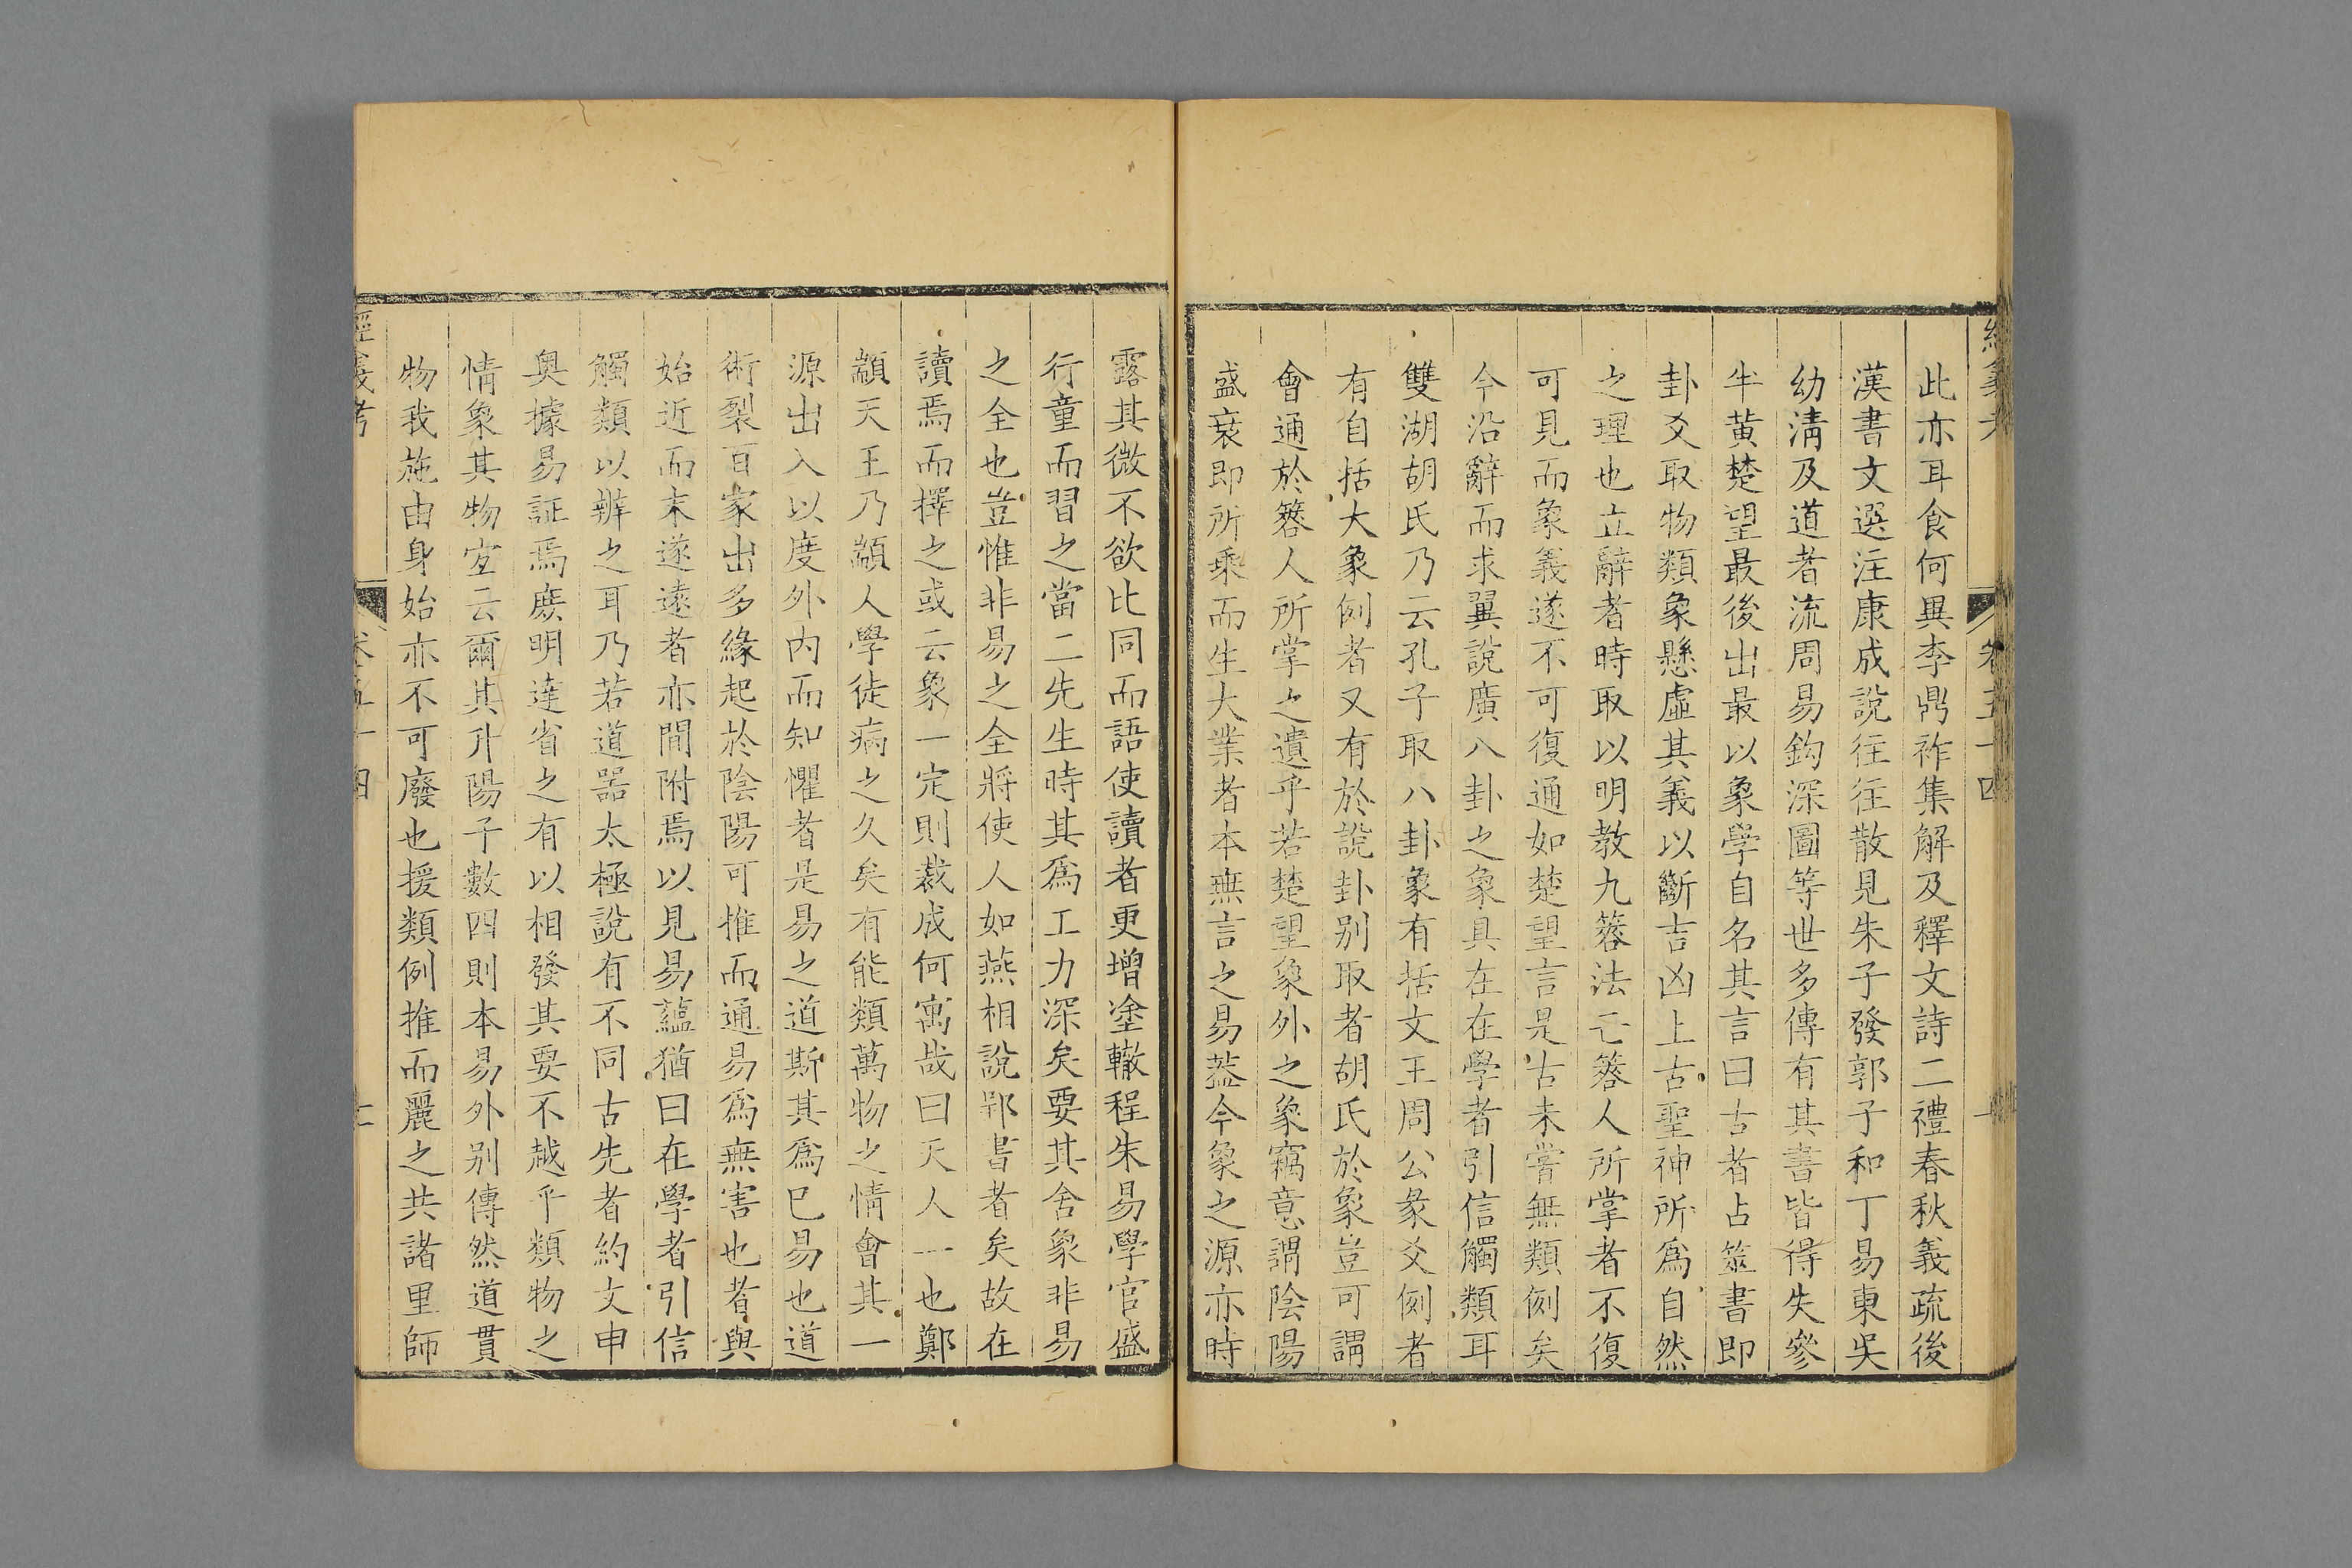 此亦耳食何異李鼎祚集解及釋文詩二禮春秋義疏後
漢書文選注康成說往往散見朱子發郭子和丁易東吳
幼清及道者流周易鈎深圖等世多傳有其書皆得失參
半黄楚望最後出最以象學自名其言曰古者占筮書即
卦爻取物類象懸虛其義以斷吉凶上古聖神所爲自然
之理也立辭者時取以明教九簭法亡簭人所掌者不復
可見而象義遂不可復通如楚望言是古未嘗無類例矣
今沿辭而求翼說廣八卦之象具在在學者引信觸類耳
雙湖胡氏乃云孔子取八卦象有括文王周公彖爻例者
有自括大象例者又有於說卦别取者胡氏於象豈可謂
會通於簭人所掌之遺乎若楚望象外之象竊意謂陰陽
盛衰即所乘而生大業者本無言之易葢今象之源亦時
露其微不欲比同而語使讀者更增塗轍程朱易學官盛
行童而習之當二先生時其爲工力深矣要其舍象非易
之全也豈惟非易之全將使人如燕相說郢書者矣故在
讀焉而擇之或云象一定則裁成何寓哉曰天人一也鄭
顓天王乃顓人學徒病之久矣有能類萬物之情會其一
源出入以度外内而知懼者是易之道斯其爲已易也道
術裂百家出多緣起於陰陽可推而通易爲無害也者與
始近而末遂遠者亦間附焉以見易蘊猶曰在學者引信
觸類以辨之耳乃若道器太極說有不同古先者約文申
奥據易証焉庶明達省之有以相發其要不越乎類物之
情象其物宜云爾其升陽子數四則本易外别傳然道貫
物我施由身始亦不可廢也援類例推而麗之共諸里師
經義考
卷五十四